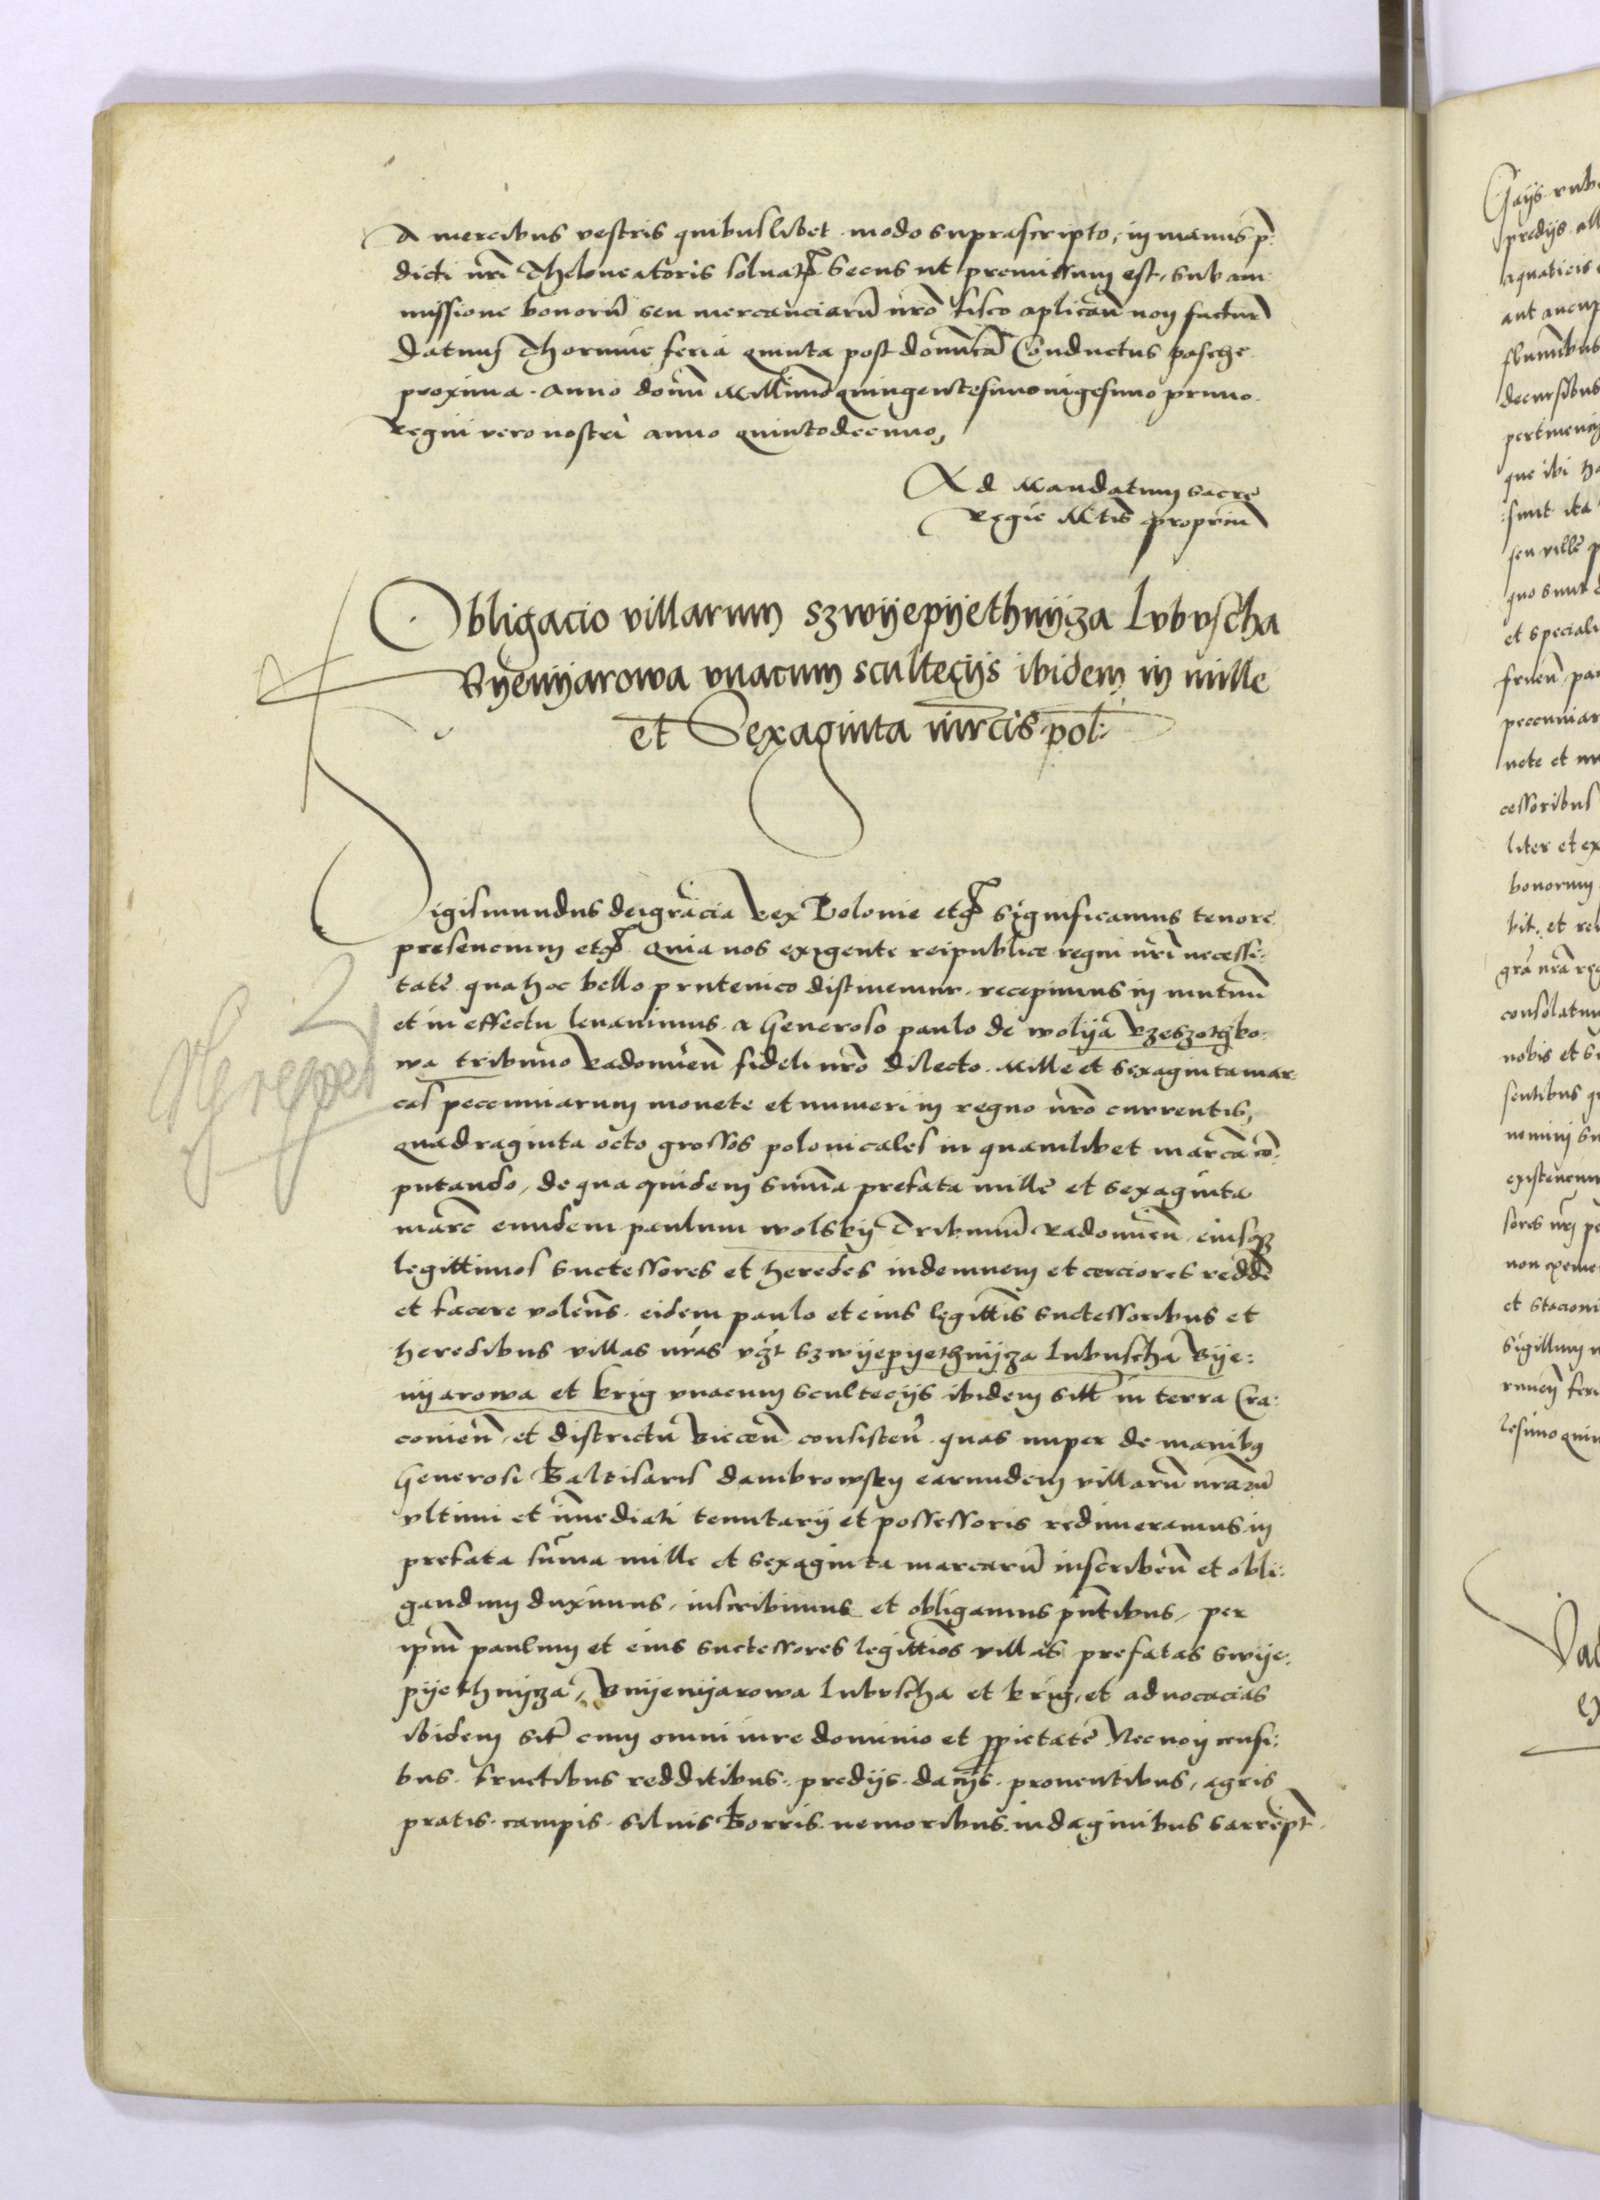 A mercibus vestris quibuslibet modo suprascripto, in manus p̃:
dicti nr̃i Theloneatoris soluatȝ Secus ut premissum est, sub am
missione bonorũ seu mercanciarũ nrõ fisco aplicañ non facturi
Datum Thorunie feria quinta post dominicã Conductus pasche
proxima. Anno domi Millimo quingentesimo vigesimo primo.
Regni vero nostri anno quintodecimo,
Ad Mandatum sacre
Regie Mtis propriũ
Obligacio villarum szwyepyethnycza Lubuscha
Byenyarowa vnacum scultecys ibidem in mille
et Sexaginta mrcis pol:
Sigismundus dei gracia Rex Polonie etc significamus tenore
presencium etc Quia nos exigente reipublice regni nr̃i necessi:
tate qua hoc bello prutenico distinemur, recepimus in mutuũ
et in effectu leuauimus a Generoso paulo de wolya Rzeszothko:
wa tribuno Radomieñ fideli nrõ dilecto. Mille et sexaginta mar:
cas pecuniarum monete et numeri in regno nrõ currentis,
quadraginta octo grossos polonicales in quamlibet marcã cõ:
putando, de qua quidem sum̃a prefata mille et sexaginta
marc eundem paulum wolsky Tribunũ Radomieñ eiusqȝ
legittimos successores et heredes indemnem et cerciores reddẽ
et facere volens. eidem paulo et eius legittis successoribus et
heredibus villas nras vzt szwyepyethnycza Lubuscha Bye:
nyarowa et krig vnacum scultecys ibidem sitt in terra Cra:
couieñ, et districtu Biecceñ consisteñ. quas nuper de manibȝ
Generosi Baltisaris dambrowsky earundem villarũ nrarũ
vltimi et im̃ediati tenutary et possessoris redimeramus, in
prefata sum̃a mille et sexaginta marcarũ inscribeñ et obli:
gandum duximus, inscribimus et obligamus pñtibus, per
ipm̃ paulum et eius successores legittimos villas prefatas swye:
pyethnycza, Bnyenyarowa Lubuscha et krig, et aduocacias
ibidem sit cum omni iure dominio et ppietate Necnon censi:
bus. fructibus redditibus. predys. dacys. prouentibus, agris
pratis. campis. siluis Borris. nemoribus. indaginibus Sarrept.
2